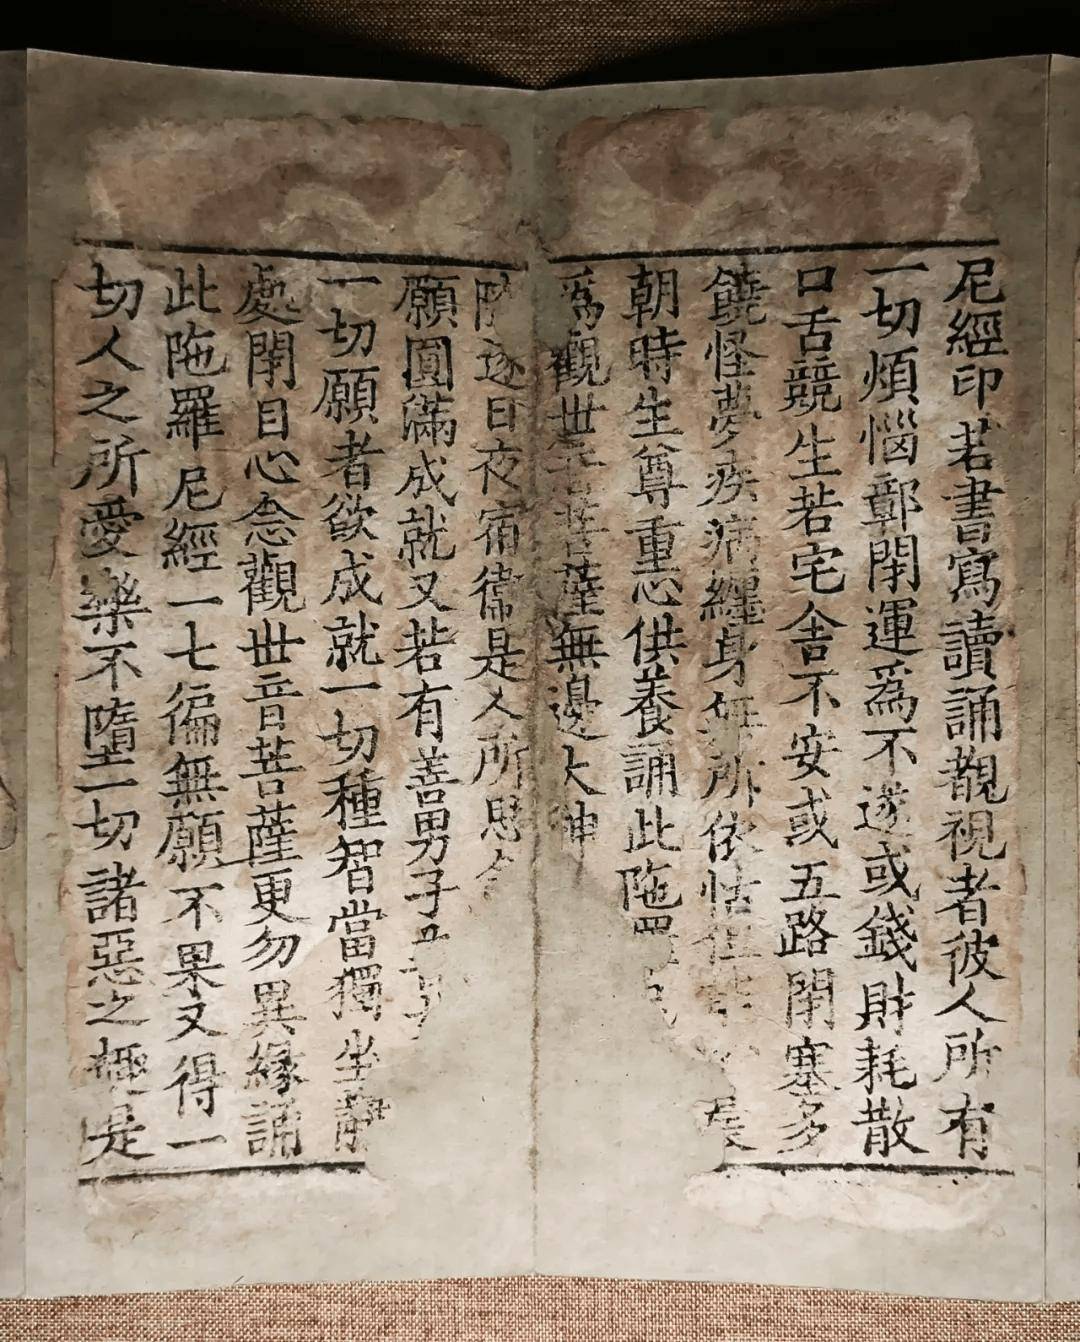 尼經印若書寫讀誦觀視者彼人所有
一切煩惱鄣閇運爲不遂或錢財耗散
口舌競生若宅舍不安或五路閇塞多
饒怪夢疾病纏身無所依怙但
朝時生尊重心供養誦此陁羅
爲觀世音菩薩無邊大神
隨逐日夜宿衛是人所思念
願圓滿成就又若有善男子
一切願者欲成就一切種智當獨坐靜
處閇目心念觀世音菩薩更勿異緣誦
此陁羅尼經一七徧無願不果又得一
切人之所愛樂不墮一切諸惡之趣是